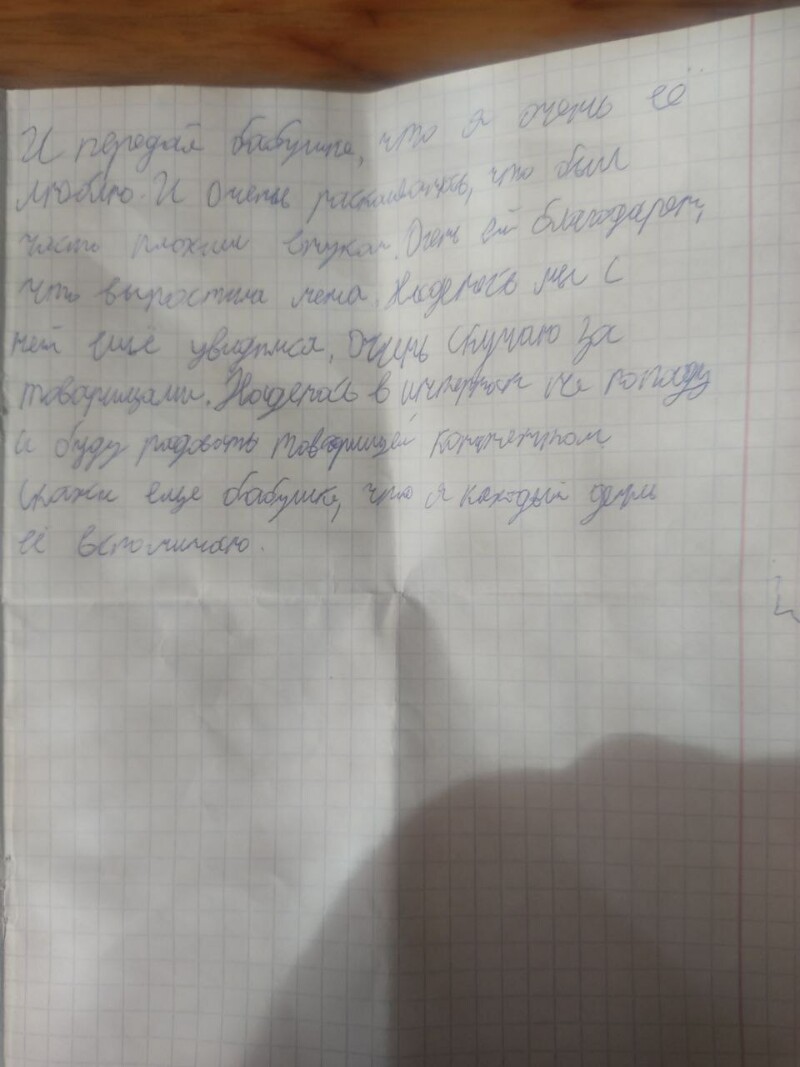 И передай бабушке, что я очень её
люблю. И очень раскаиваюсь, что был
часто плохим внуком. Очень ей благодарен,
что выростила меня. Надеюсь мы с
ней ещё увидимся. Очень скучаю за
товарищами. Надеюсь в интернат не попаду
и буду радовать товарищей
Скажи еще бабушке, что я каждый день
её вспоминаю.